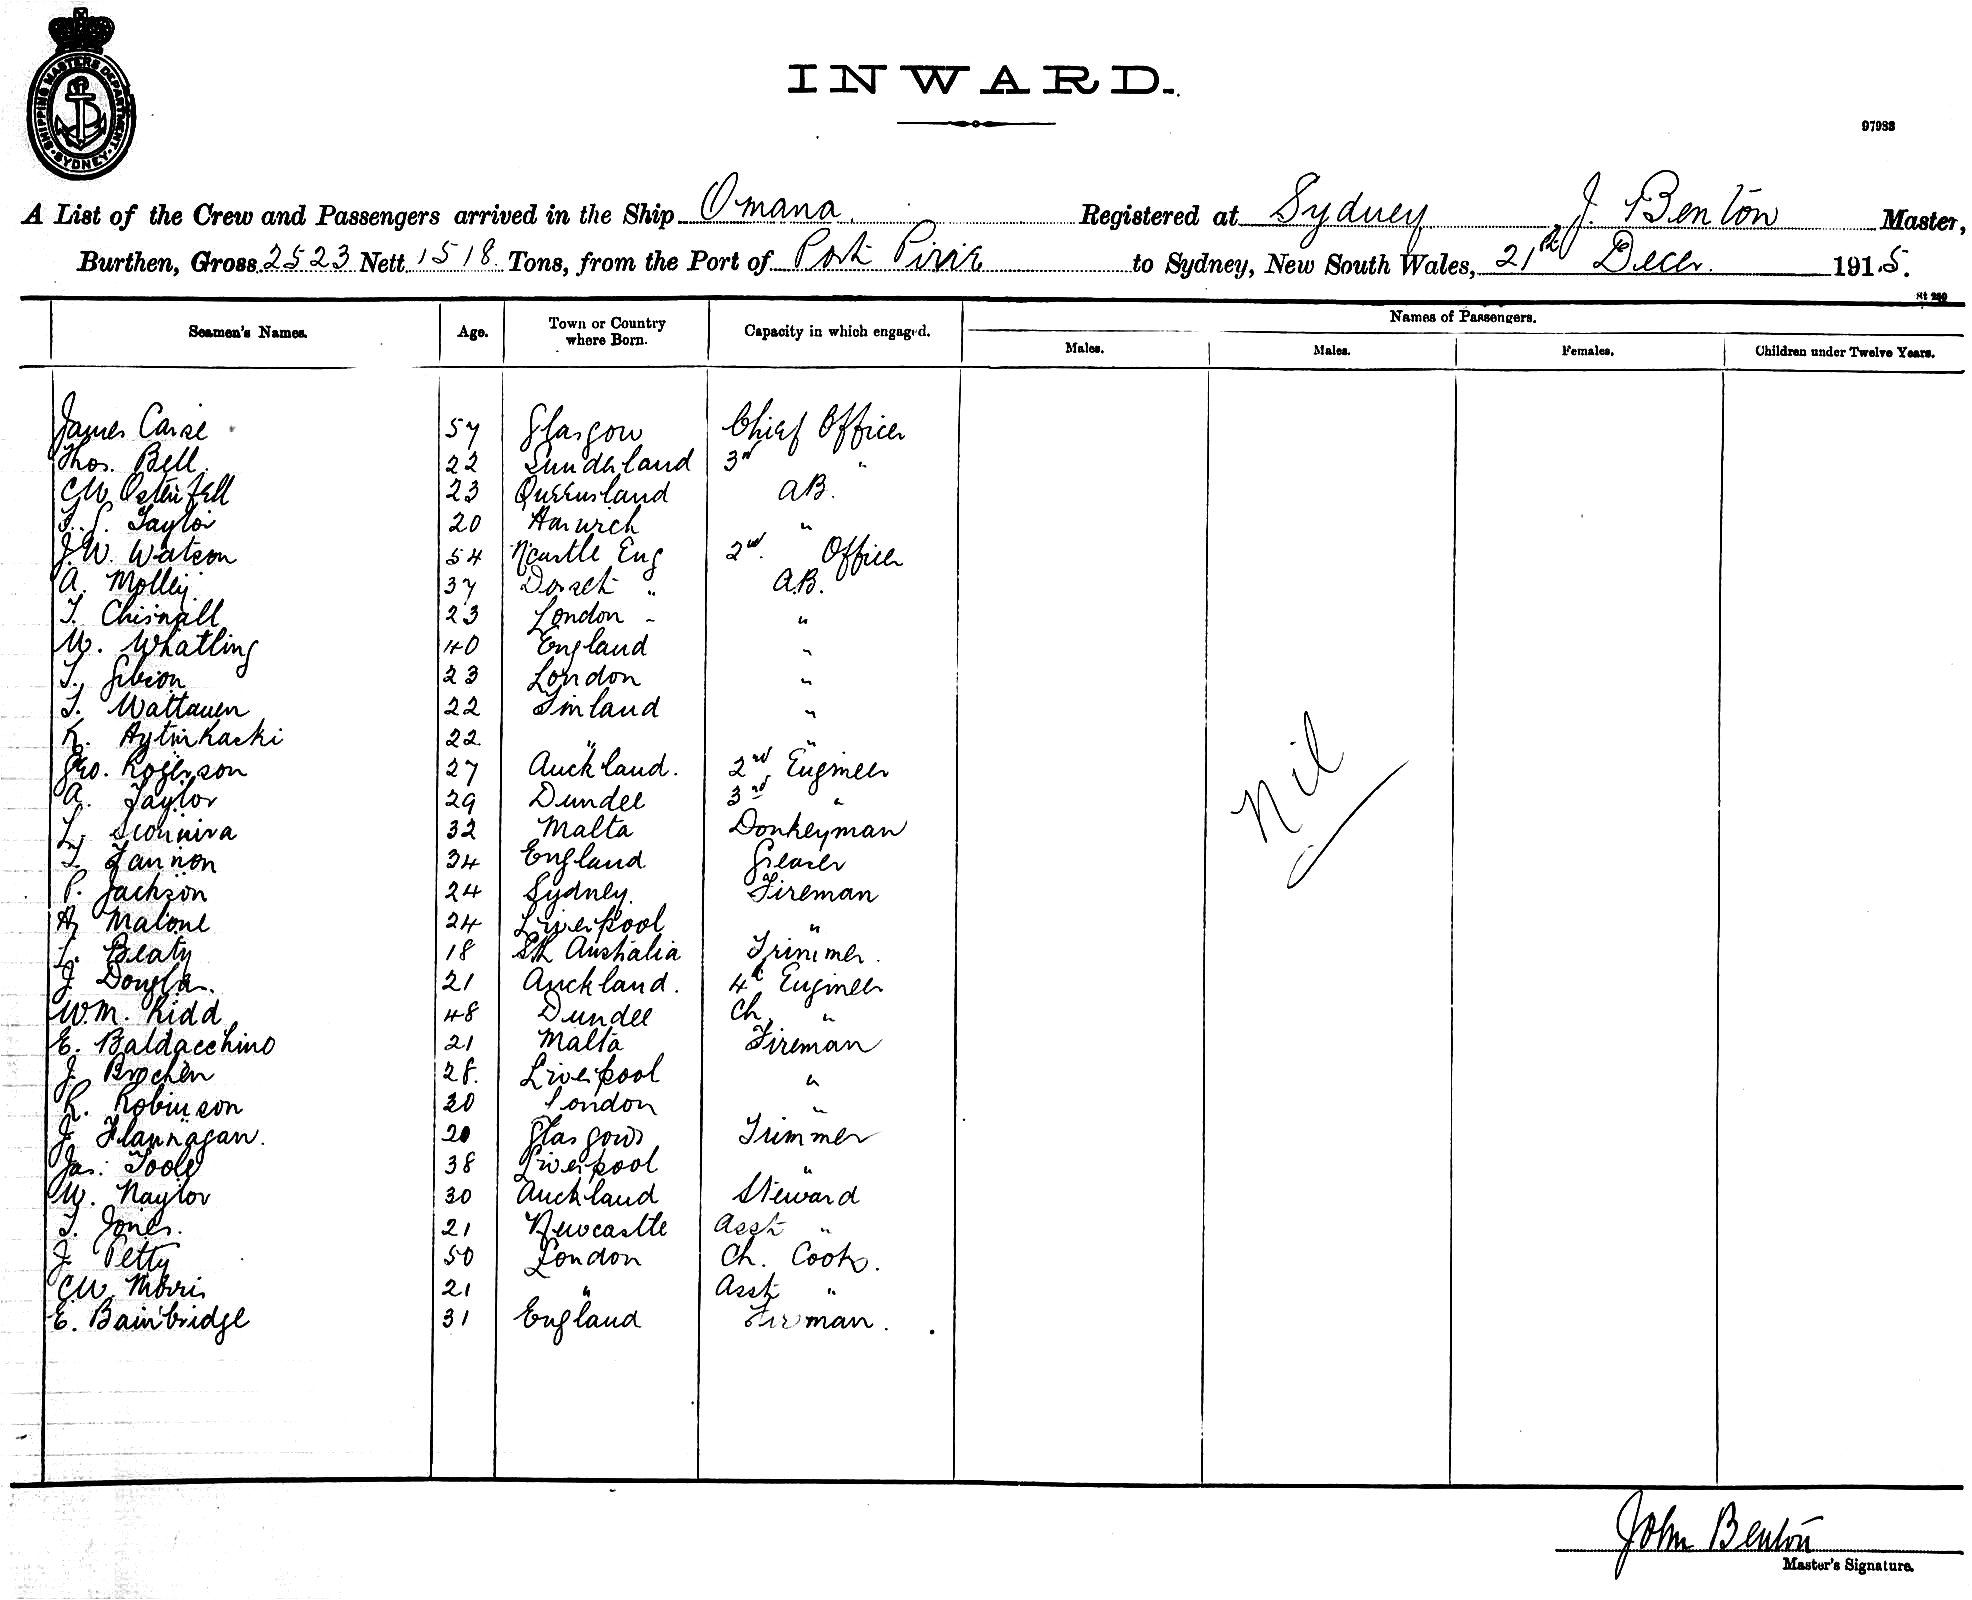 SHIPPING MASTERS DEPARTMENT
SYDNEY
INWARD.
97983
A List of the Crew and Passengers arrived in the Ship Omana Registered at Sydney J. Benton Master,
Burthen, Gross 2523 Nett 1518 Tons, from the Port of Port Pirie to Sydney, New South Wales, 21st Decr. 1915.
St 230
Seamen's Names. Age. Town or Country where Born. Capacity in which engaged. Names of Passengers.
Males. Males. Females. Children under Twelve Years.
James Carse 57 Glasgow Chief Officer
Thos. Bell. 22 Sunderland 3rd "
C.W. Ostenfell 23 Queensland AB.
T. S. Taylor 20 Harwich "
J.W. Watson 54 N'castle Eng 2nd. Officer
A. 37 Dorset " A.B.
T. Chisnall 23 London " "
W. Whatling 40 England "
T. Gibson 23 London "
T. 22 Finland "
K. 22 " "
Geo. Rogerson 27 Auckland. 2nd Engineer
A. Taylor 29 Dundee 3rd "
32 Malta Donkeyman
T. Fannon 34 England Greaser
P. Jackson 24 Sydney. Fireman
A. Malone 24 Liverpool "
L. Beaty 18 Sth Australia Trimmer.
J Douglas. 21 Auckland. 4th Engineer
W.M. Kidd 48 Dundee Ch "
E. Baldacchino 21 Malta Fireman
J. 28. Liverpool "
R. Robinson 30 London "
J Flannagan. 20 Glasgow Trimmer
Jas. Toole 38 Liverpool "
W. Naylor 30 Auckland Steward
T. Jones. 21 Newcastle Asst "
J. Petty 50 London Ch. Cook.
C.W. Morris 21 " Asst "
E. Bainbridge 31 England Fireman.
Nil
John Benton
Master's Signature.